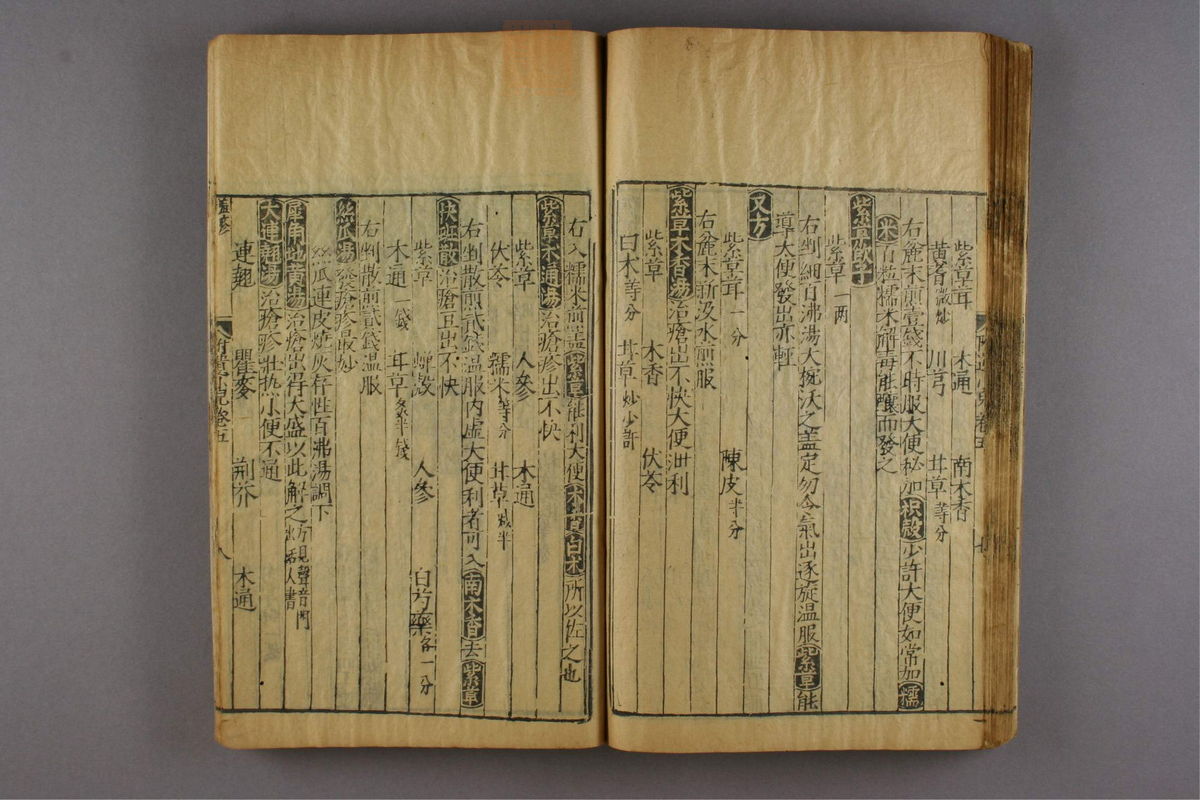 紫草茸 木通 南木香
黄芪微炒 川芎 甘草等分
右麄末煎壹錢不時服大便秘加枳殼少許大便如常加糯
米百粒糯米解毒能釀而發之
紫草飲子
紫草一两
右剉細百沸湯大椀沃之蓋定勿令氣出逐旋温服紫草能
導大便發出亦輕
又方
紫草茸一分 陳皮半分
右麄末新汲水煎服
紫草木香湯治瘡出不快大便泄利
紫草 木香 伏苓
白术等分 甘草炒少許
右入糯米煎蓋紫草能利大便木香白术所以佐之也
紫草木通湯治瘡疹出不快
紫草 人參 木通
伏苓 糯米等分 甘草减半
右剉散煎貳錢温服内虚大便利者可入南木香去紫草
快斑散治瘡豆出不快
紫草 蟬殼 人參 白芍藥各一分
木通一錢 甘草炙半錢
右剉散煎貳錢温服
絲瓜湯發瘡疹最妙
絲瓜連皮燒灰存性百沸湯調下
犀角地黄湯治瘡出得大盛以此解之方見聲音門出活人書
大連翹湯治瘡疹壯热小便不通
連翹 瞿麥 荆芥 木通
瘡疹
附遺小兒卷五
八